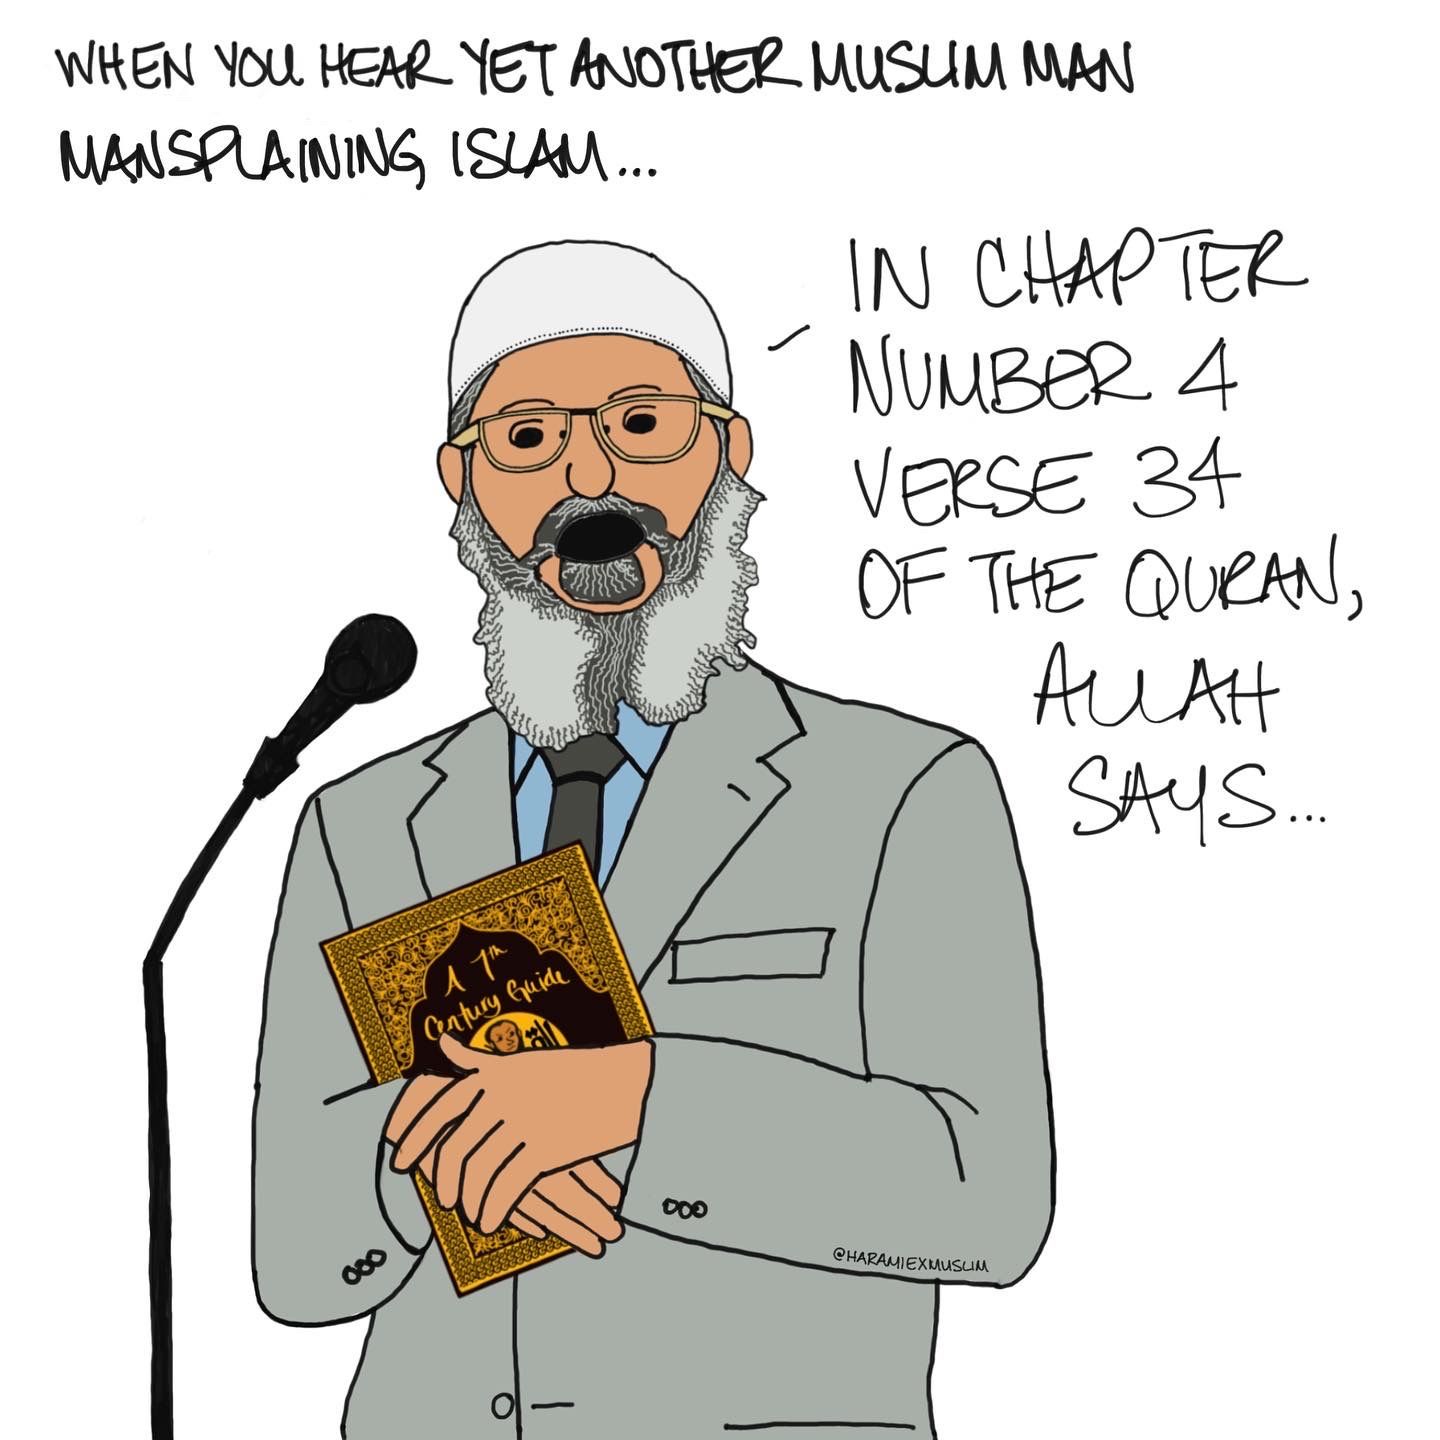 WHEN YOU HEAR YET ANOTHER MUSLIM MAN
MANSPLAINING ISLAM...
IN CHAPTER
NUMBER 4
VERSE 34
OF THE QURAN,
ALLAH
SAYS...
A 7th
Century Guide
@HARAMIEXMUSLIM